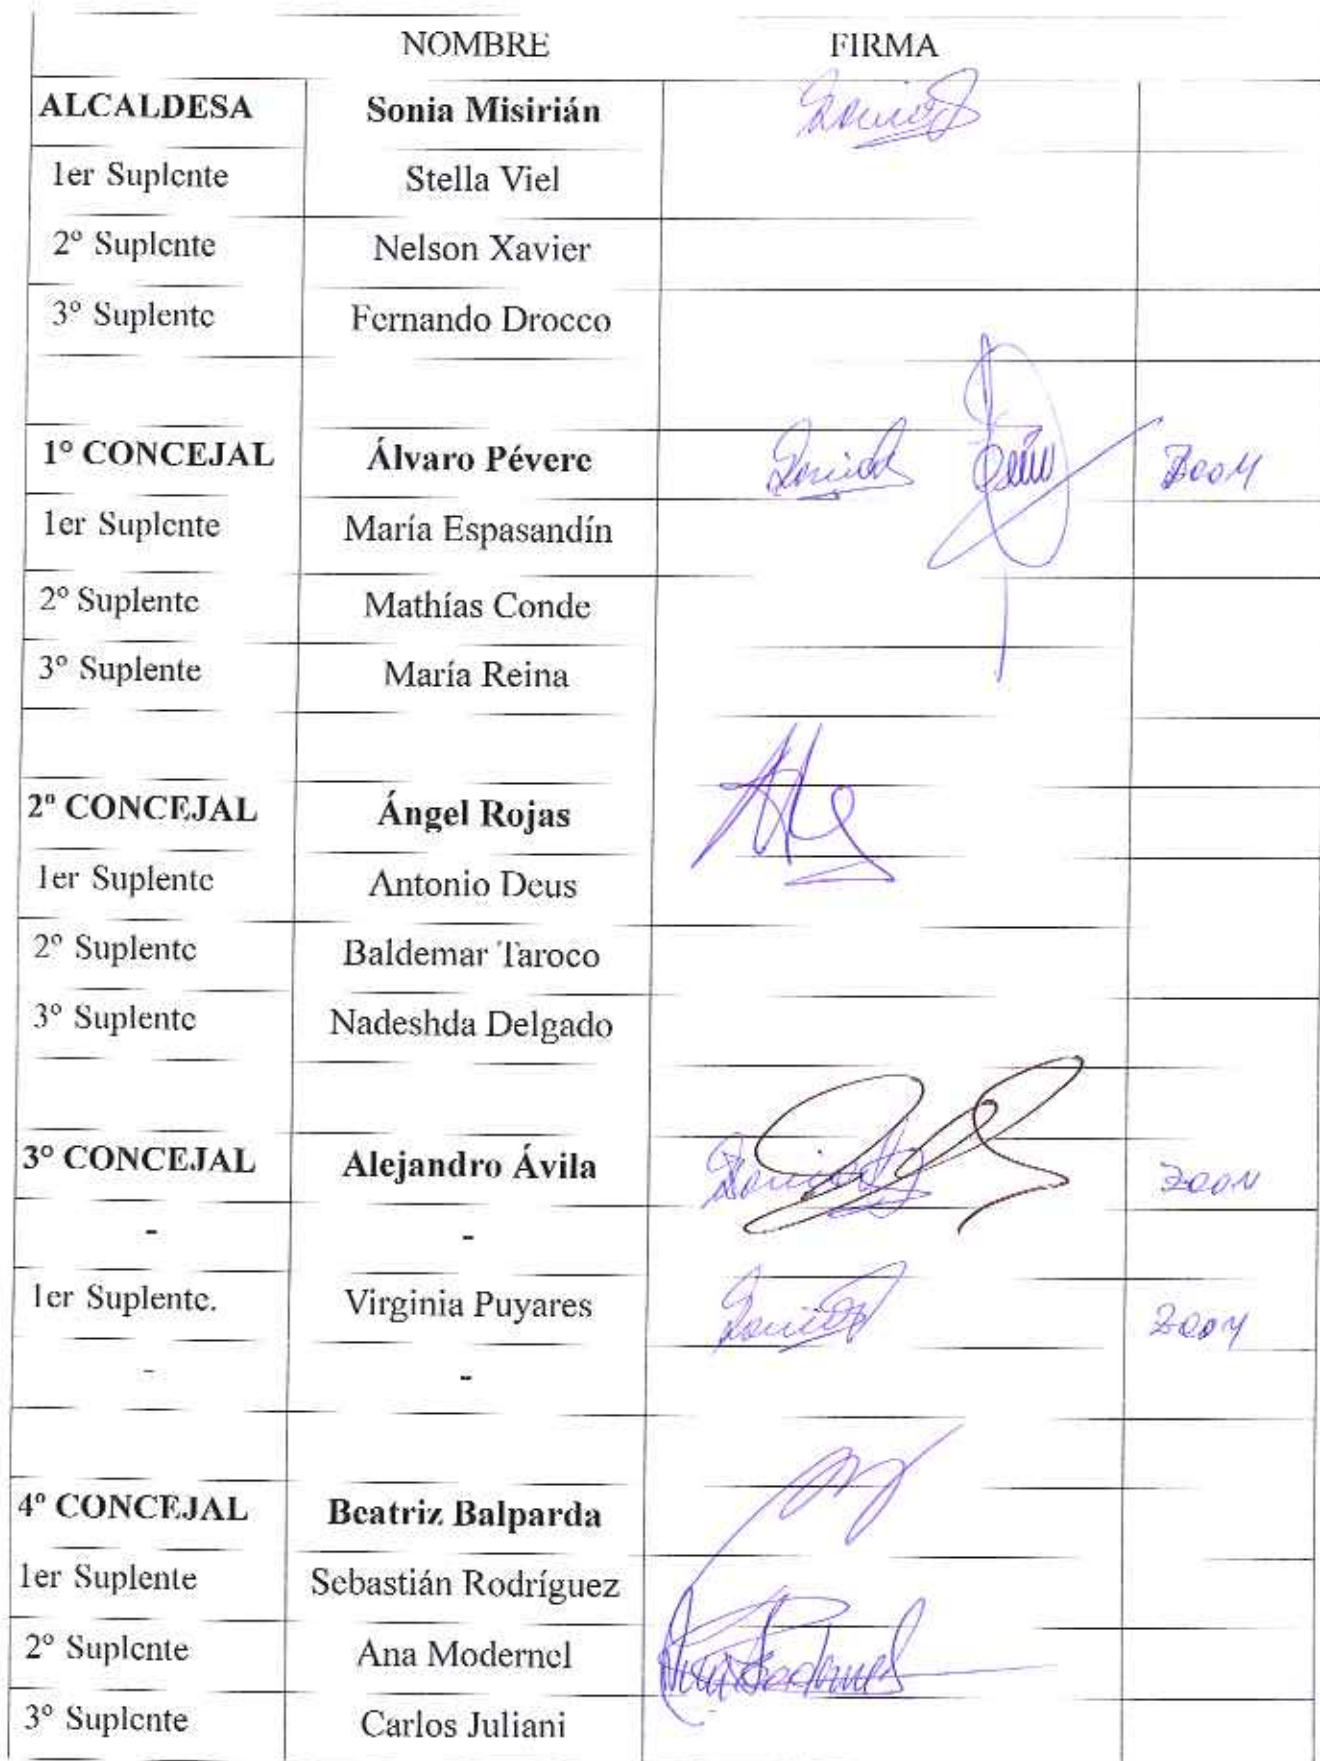 NOMBRE FIRMA
ALCALDESA Sonia Misirián
1er Suplente Stella Viel
2º Suplente Nelson Xavier
3º Suplente Fernando Drocco
1º CONCEJAL Álvaro Pévere ZOOM
1er Suplente María Espasandín
2º Suplente Mathías Conde
3º Suplente María Reina
2º CONCEJAL Ángel Rojas
1er Suplente Antonio Deus
2º Suplente Baldemar Taroco
3º Suplente Nadeshda Delgado
3º CONCEJAL Alejandro Ávila ZOOM
- -
1er Suplente. Virginia Puyares ZOOM
- -
4º CONCEJAL Beatriz Balparda
1er Suplente Sebastián Rodríguez
2º Suplente Ana Modernel
3º Suplente Carlos Juliani